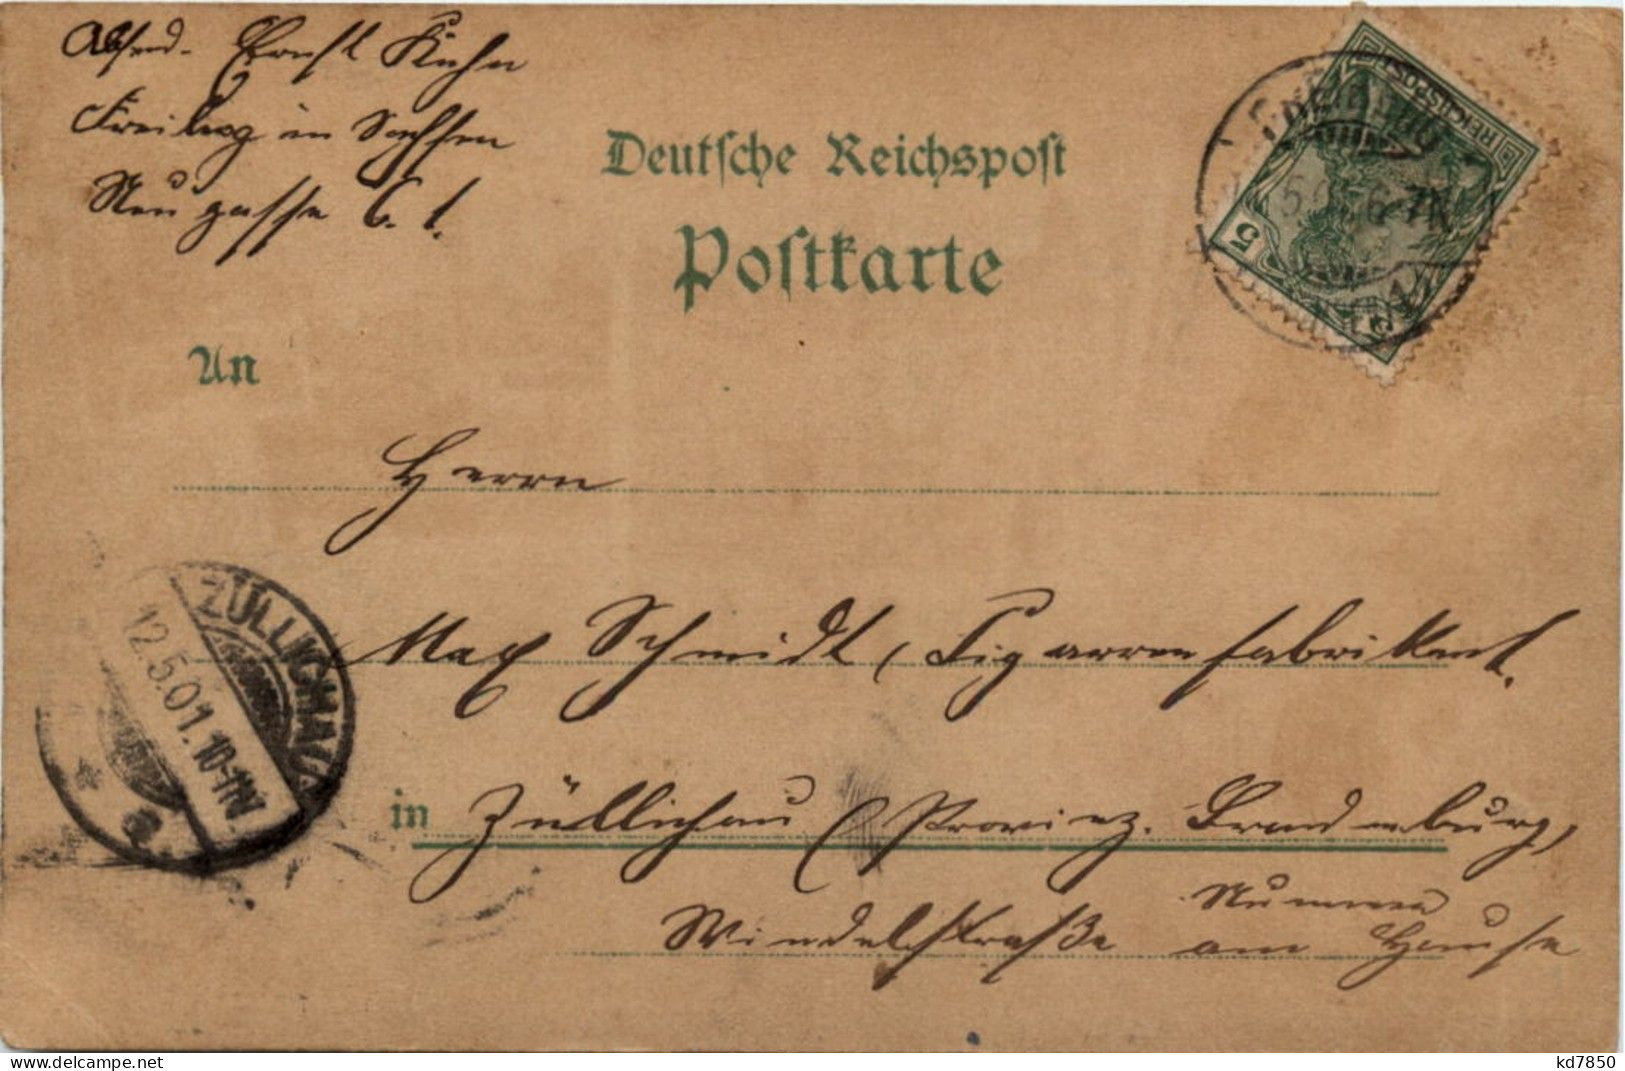 Absend. Ernst Kuhn
Freiberg in Sachsen
Neugasse 6. I.
Deutsche Reichspost
Postkarte
REICHSPOST
5
FREIBERG
6-7N
An
Herrn
ZÜLLICHAU
12.5.01. 10-11V
* a
Max Schmidt, Zigarrenfabrikant.
in Züllichau (Provinz. Brandenburg,
Nummer
am Hause
delcampe.net
kd7850